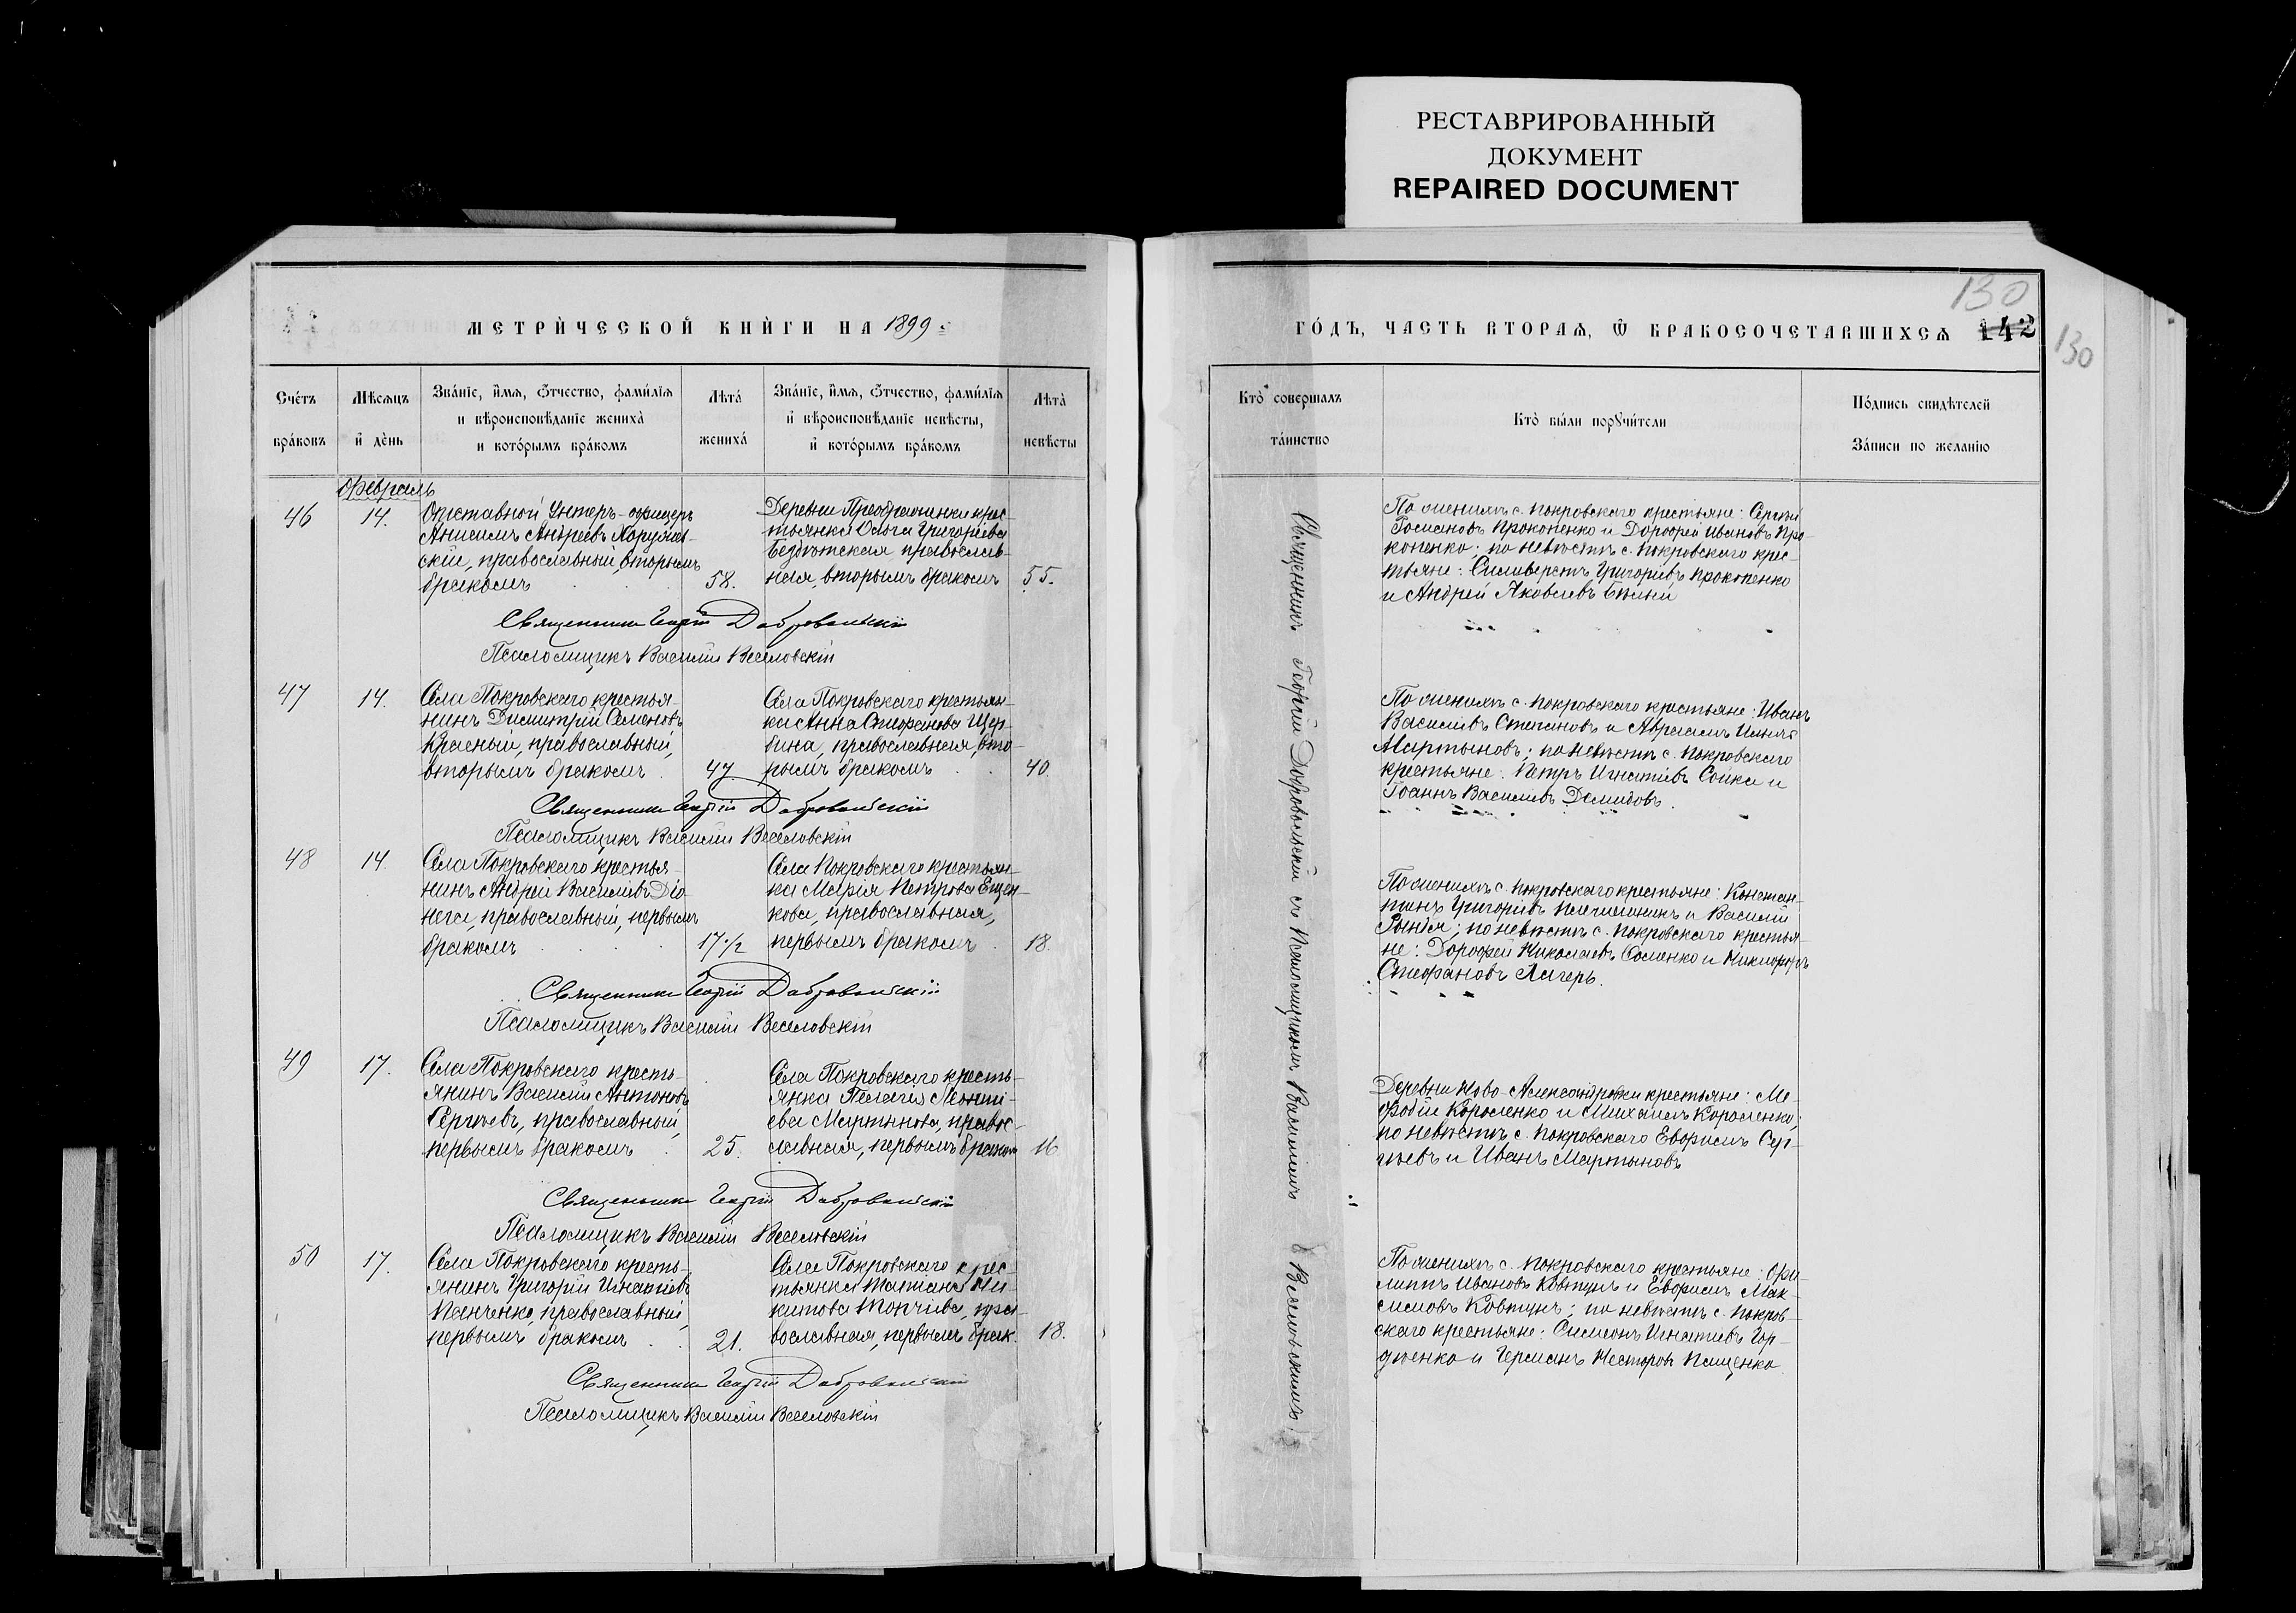 РЕСТАВРИРОВАННЫЙ
ДОКУМЕНТ
REPAIRED DOCUMENT
МЕТРИ́ЧЕСКОЙ КНИ́ГИ НА 1899
ГО́ДЪ, ЧАСТЬ ВТОРАѦ, Ѿ БРАКОСОЧЕТАВШИХСѦ 142
130
130
Сче́тъ
бра́ковъ
Мѣсяцъ
и де́нь
Зва́нїе, и́мѧ, ѻтчество, фами́лїѧ
и вѣроисповѣ́данїе жениха̀
и кото́рымъ бра́комъ
Лѣта̀
жениха̀
Зва́нїе, и́мѧ, ѻтчество, фами́лїѧ
и вѣроисповѣ́данїе невѣ́сты,
и кото́рымъ бра́комъ
Лѣта̀
невѣ́сты
Кто̀ совершалъ
та́инство
Кто̀ бы́ли порꙋчи́тели
По́дпись свидѣ́телей
За́писи по жела́нїю
Февраль
46
14.
Отставной Унтеръ-офицеръ
Анисимъ Андреевъ Харуж-
скій, православный, вторымъ
бракомъ
58.
Деревни Преображенки крес-
тьянка Ольга Григоріева
православ-
ная, вторымъ бракомъ
55.
По женихѣ с. Покровскаго крестьяне: Сергѣй
Прокопенко и Дорофей Ивановъ Про-
копенко; по невѣстѣ с. Покровскаго крес-
тьяне: Сильверстъ Григоріевъ Прокопенко
и Андрей Яковлевъ Бѣлый
Священникъ Георгій Добровольскій
Псаломщикъ Василій Веселовскій
47
14.
Села Покровскаго крестья-
нинъ Димитрій Семеновъ
Красный, православный,
вторымъ бракомъ
47
Села Покровскаго крестьян-
ка Анна Стефанова Щер-
бина, православная, вто-
рымъ бракомъ
40.
По женихѣ с. Покровскаго крестьяне: Иванъ
Василіевъ Степановъ и Авраамъ Ильинъ
Мартыновъ; по невѣстѣ с. Покровскаго
крестьяне: Петръ Игнатіевъ Сойка и
Іоаннъ Василіевъ Демидовъ.
Священникъ Георгій Добровольскій
Псаломщикъ Василій Веселовскій
48
14
Села Покровскаго крестья-
нинъ Андрей Василіевъ Діо-
нега, православный, первымъ
бракомъ
17 1/2
Села Покровскаго крестьян-
ка Марія Петрова Ещен-
кова, православная,
первымъ бракомъ
18.
По женихѣ с. Покровскаго крестьяне: Констан-
тинъ Григоріевъ и Василій
Рында; по невѣстѣ с. Покровскаго крестья-
не: Дорофей Николаевъ Соменко и Никифоръ
Стефановъ Лагерь.
Священникъ Георгій Добровольскій
Псаломщикъ Василій Веселовскій
49
17.
Села Покровскаго кресть-
янинъ Василій Антоновъ
Сергѣевъ, православный,
первымъ бракомъ
25.
Села Покровскаго кресть-
янка Пелагія Леонті-
ева Мартынова, правос-
лавная, первымъ бракомъ
16
Деревни Ново-Александровки крестьяне: Ме-
фодій Короленко и Михаилъ Короленко;
по невѣстѣ с. Покровскаго Евфимъ Сер-
гѣевъ и Иванъ Мартыновъ
Священникъ Георгій Добровольскій
Псаломщикъ Василій Веселовскій
50
17.
Села Покровскаго кресть-
янинъ Григорій Игнатіевъ
Панченко, православный,
первымъ бракомъ
21.
Села Покровскаго крес-
тьянка Татіана Ни-
китова Топчіева, пра-
вославная, первымъ брак.
18.
По женихѣ с. Покровскаго крестьяне: Фи-
липпъ Ивановъ Ковтунъ и Евфимъ Мак-
симовъ Ковтунъ; по невѣстѣ с. Покров-
скаго крестьяне: Симеонъ Игнатіевъ Гор-
дѣенко и Германъ Несторовъ Пащенко
Священникъ Георгій Добровольскій
Псаломщикъ Василій Веселовскій
Священникъ Георгій Добровольскій съ псаломщикомъ Василіемъ Веселовскимъ